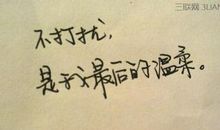 三联网 3LIAN
不打扰，
是我最后的温柔。